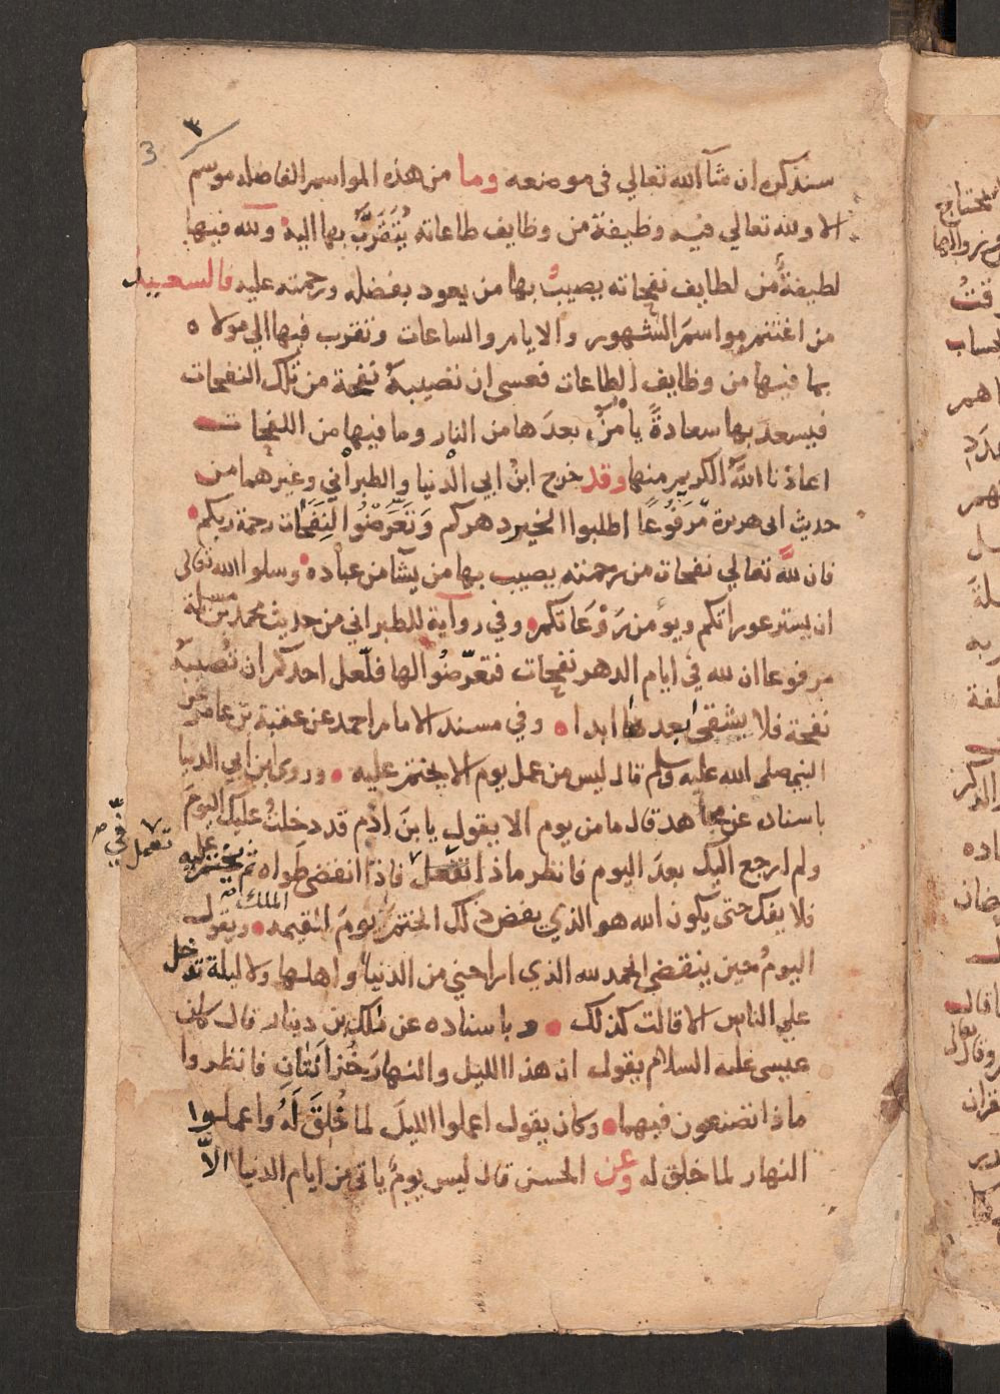 ٣
3
سنذكره ان شآ الله تعالي في موضعه وما من هذه المواسم الفاضله موسم
الا ولله تعالي فيه وظيفة من وظايف طاعاته يُتَقَرَّبُ بها اليه ولله فيها
لطيفةٌ من لطايف نفحاته يصيبُ بها من يعود بفضله ورحمته عليه فالسعيد
من اغتنم مواسمَ الشهور والايام والساعات وتقرب فيها الي مولاه
بما فيها من وظايف الطاعات فعسى ان تصيبهُ نفحة من تلك النفحات
فيسعد بها سعادةً يامنُ بعدَها من النار وما فيها من اللفحات
اعاذنا اللهُ الكريم منها وقد خرج ابنُ ابي الدنيا والطبراني وغيرهما من
حديث ابي هريرة مَرفُوعًا اطلبوا الخير دهركم وَتَعَرَّضُوا لِنَفَحَات رحمة ربكم
فان للّهِ تعالي نفحات من رحمته يصيب بها من يشآ من عباده وسلوا الله تعالى
ان يستر عوراتكم ويؤمن رَوْعَاتكم وفي روآية للطبراني من حديث محمد بن مسلمة
مرفوعا ان لله في ايام الدهر نفحات فتعرّضُوا لها فلعل احدكم ان تُصيبَهُ
نفحة فلا يشقى بعدها ابدا وفي مسند الامام احمد عن عقبة بن عامر عن
النبي صلى الله عليه وسلم قال ليس من عمل يوم الا يختم عليه وروى ابن ابي الدنيا
باسناده عن مجاهد قال ما من يوم الا يقول يا بنَ ادم قد دخلتُ عليك اليومَ
ولم ارجع اليك بعدَ اليوم فانظر ماذا تعمل فاذا انقضى طواه ثم يختم عليه
تعمل فيّ
فلا يفك حتى يكون الله هو الذي يفض ذلك الختمَ يومَ القيمه ويقول
الملك
اليومُ حين ينقضي الحمد لله الذي اراحني من الدنيا واهلها ولا ليلة تدخل
علي الناس الا قالت كذلك وباسناده عن مالك بن دينار قال كان
عيسى عليه السلام يقول ان هذا الليل والنهارَ خزانَتَانِ فانظروا
ماذا تصنعون فيهما وكان يقول اعملوا الليلَ لما خُلقَ لَهُ واعملوا
النهار لما خلق له وعن الحسن قال ليس يومٌ ياتي من ايام الدنيا الاَّ